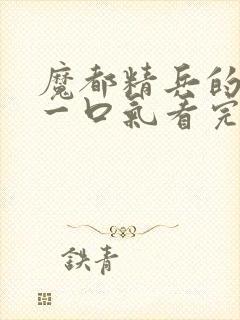 魔都精兵的
一口氣看完
鉄青